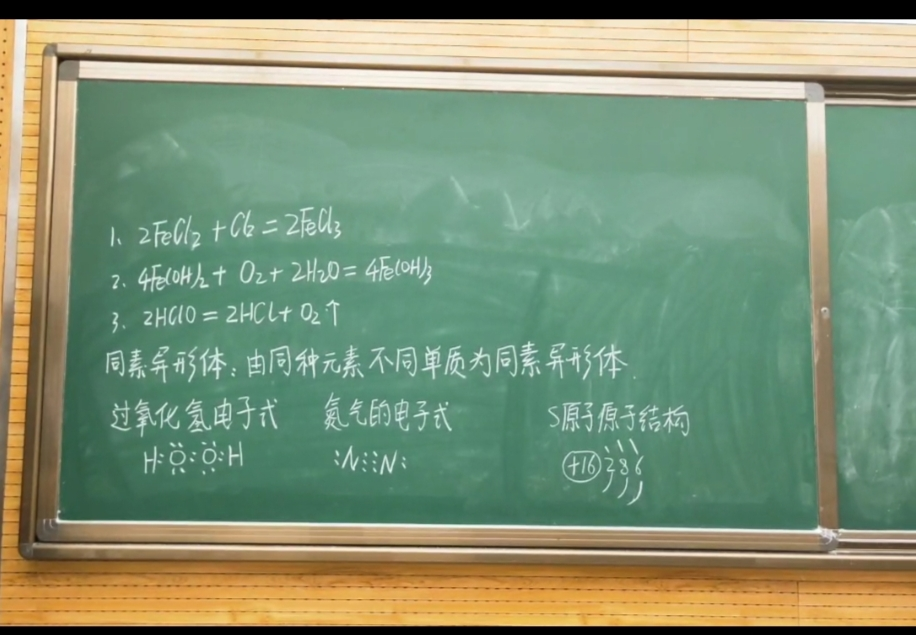 1、2FeCl₂+Cl₂=2FeCl₃
2、4Fe(OH)₂+O₂+2H₂O=4Fe(OH)₃
3、2HClO=2HCl+O₂↑
同素异形体：由同种元素不同单质为同素异形体.
过氧化氢电子式 氮气的电子式 S原子原子结构
H:Ö:Ö:H :N⋮⋮N: +16 2 8 6